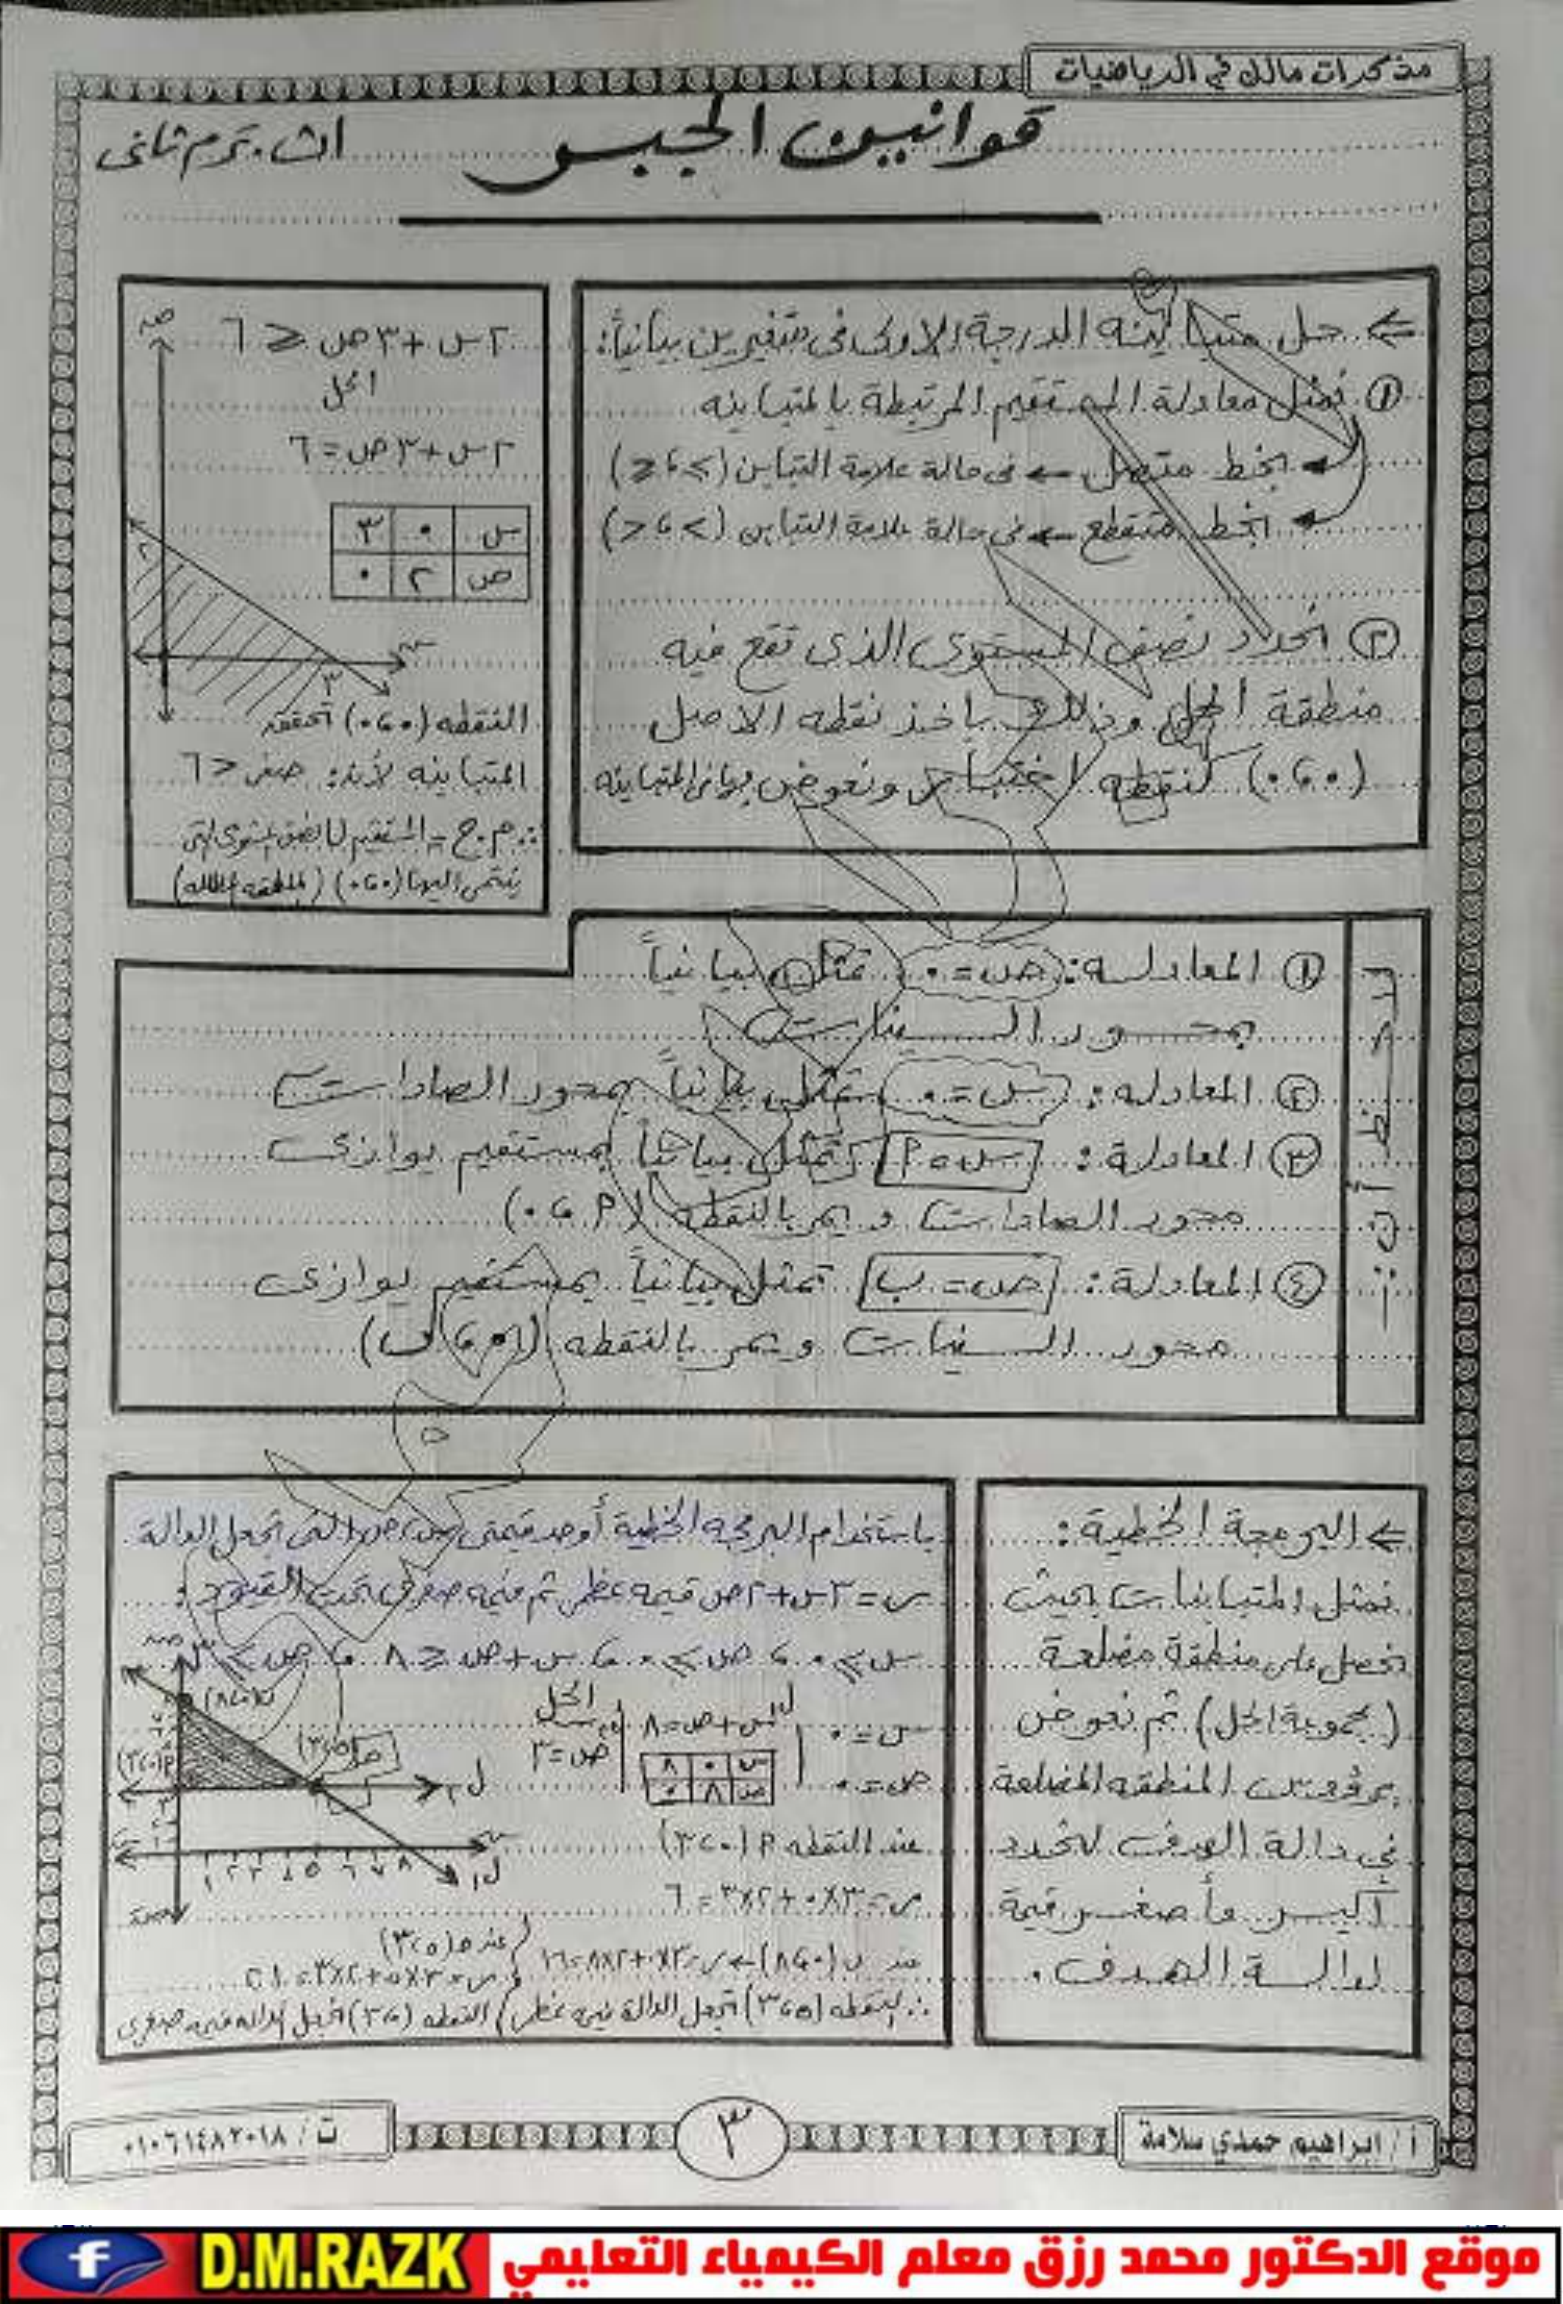 مذكرات مالك في الرياضيات
قوانين الجبر
١ث. ترم ثانى
← حل متباينه الدرجة الاولى فى متغيرين بيانياً:
① نمثل معادلة المستقيم المرتبطة بالمتباينه
بخط متصل ← فى حالة علامة التباين (≥ ، ≤)
بخط متقطع ← فى حالة علامة التباين (> ، <)
② نحدد نصف المستوى الذى تقع فيه
منطقة الحل وذلك بأخذ نقطه الاصل
(٠،٠) كنقطه اختبار ونعوض بها فى المتباينه
٢س + ٣ص ≤ ٦
الحل
٢س + ٣ص = ٦
س ٠ ٣
ص ٢ ٠
ص
٢
س
٣
النقطه (٠،٠) تحقق
المتباينه لأنه: صفر < ٦
∴ م.ح = المستقيم ل ∪ نصف المستوى التى
ينتمى اليها (٠،٠) (المنطقه المظلله)
لاحظ أن:
① المعادلة: ص = ٠ تمثل بيانياً
بمحور السينات
② المعادله: س = ٠ تمثل بيانياً بمحور الصادات
③ المعادلة: س = م تمثل بيانياً بمستقيم يوازى
محور الصادات و يمر بالنقطه (م ، ٠)
④ المعادلة: ص = ب تمثل بيانياً بمستقيم يوازى
محور السينات و يمر بالنقطه (٠ ، ب)
← البرمجة الخطية:
نمثل المتباينات بحيث
نحصل على منطقة مضلعة
(مجموعة الحل) ثم نعوض
برؤوس المنطقه المضلعة
فى دالة الهدف لنحدد
أكبر وأصغر قيمة
لدالة الهدف.
باستخدام البرمجه الخطية أوجد قيمتى س، ص التى تجعل الدالة
ر = ٣س + ٢ص قيمه عظمى ثم قيمه صغرى تحت القيود:
س ≥ ٠ ، ص ≥ ٠ ، س + ص ≤ ٨ ، ص ≥ ٣
الحل
س = ٠
ص = ٠
ل١: س + ص = ٨
س ٠ ٨
ص ٨ ٠
ص = ٣
عند النقطه م (٠،٣)
ر = ٣×٠ + ٢×٣ = ٦
عند ن (٠،٨) ← ر = ٣×٠ + ٢×٨ = ١٦
عند ه (٥،٣)
ر = ٣×٥ + ٢×٣ = ٢١
∴ النقطه (٥،٣) تجعل الدالة قيمه عظمى، النقطه (٠،٣) تجعل الداله قيمه صغرى
أ / ابراهيم حمدي سلامة
٣
ت / ٠١٠٦١٤٨٢٠١٨
موقع الدكتور محمد رزق معلم الكيمياء التعليمي
D.M.RAZK
f